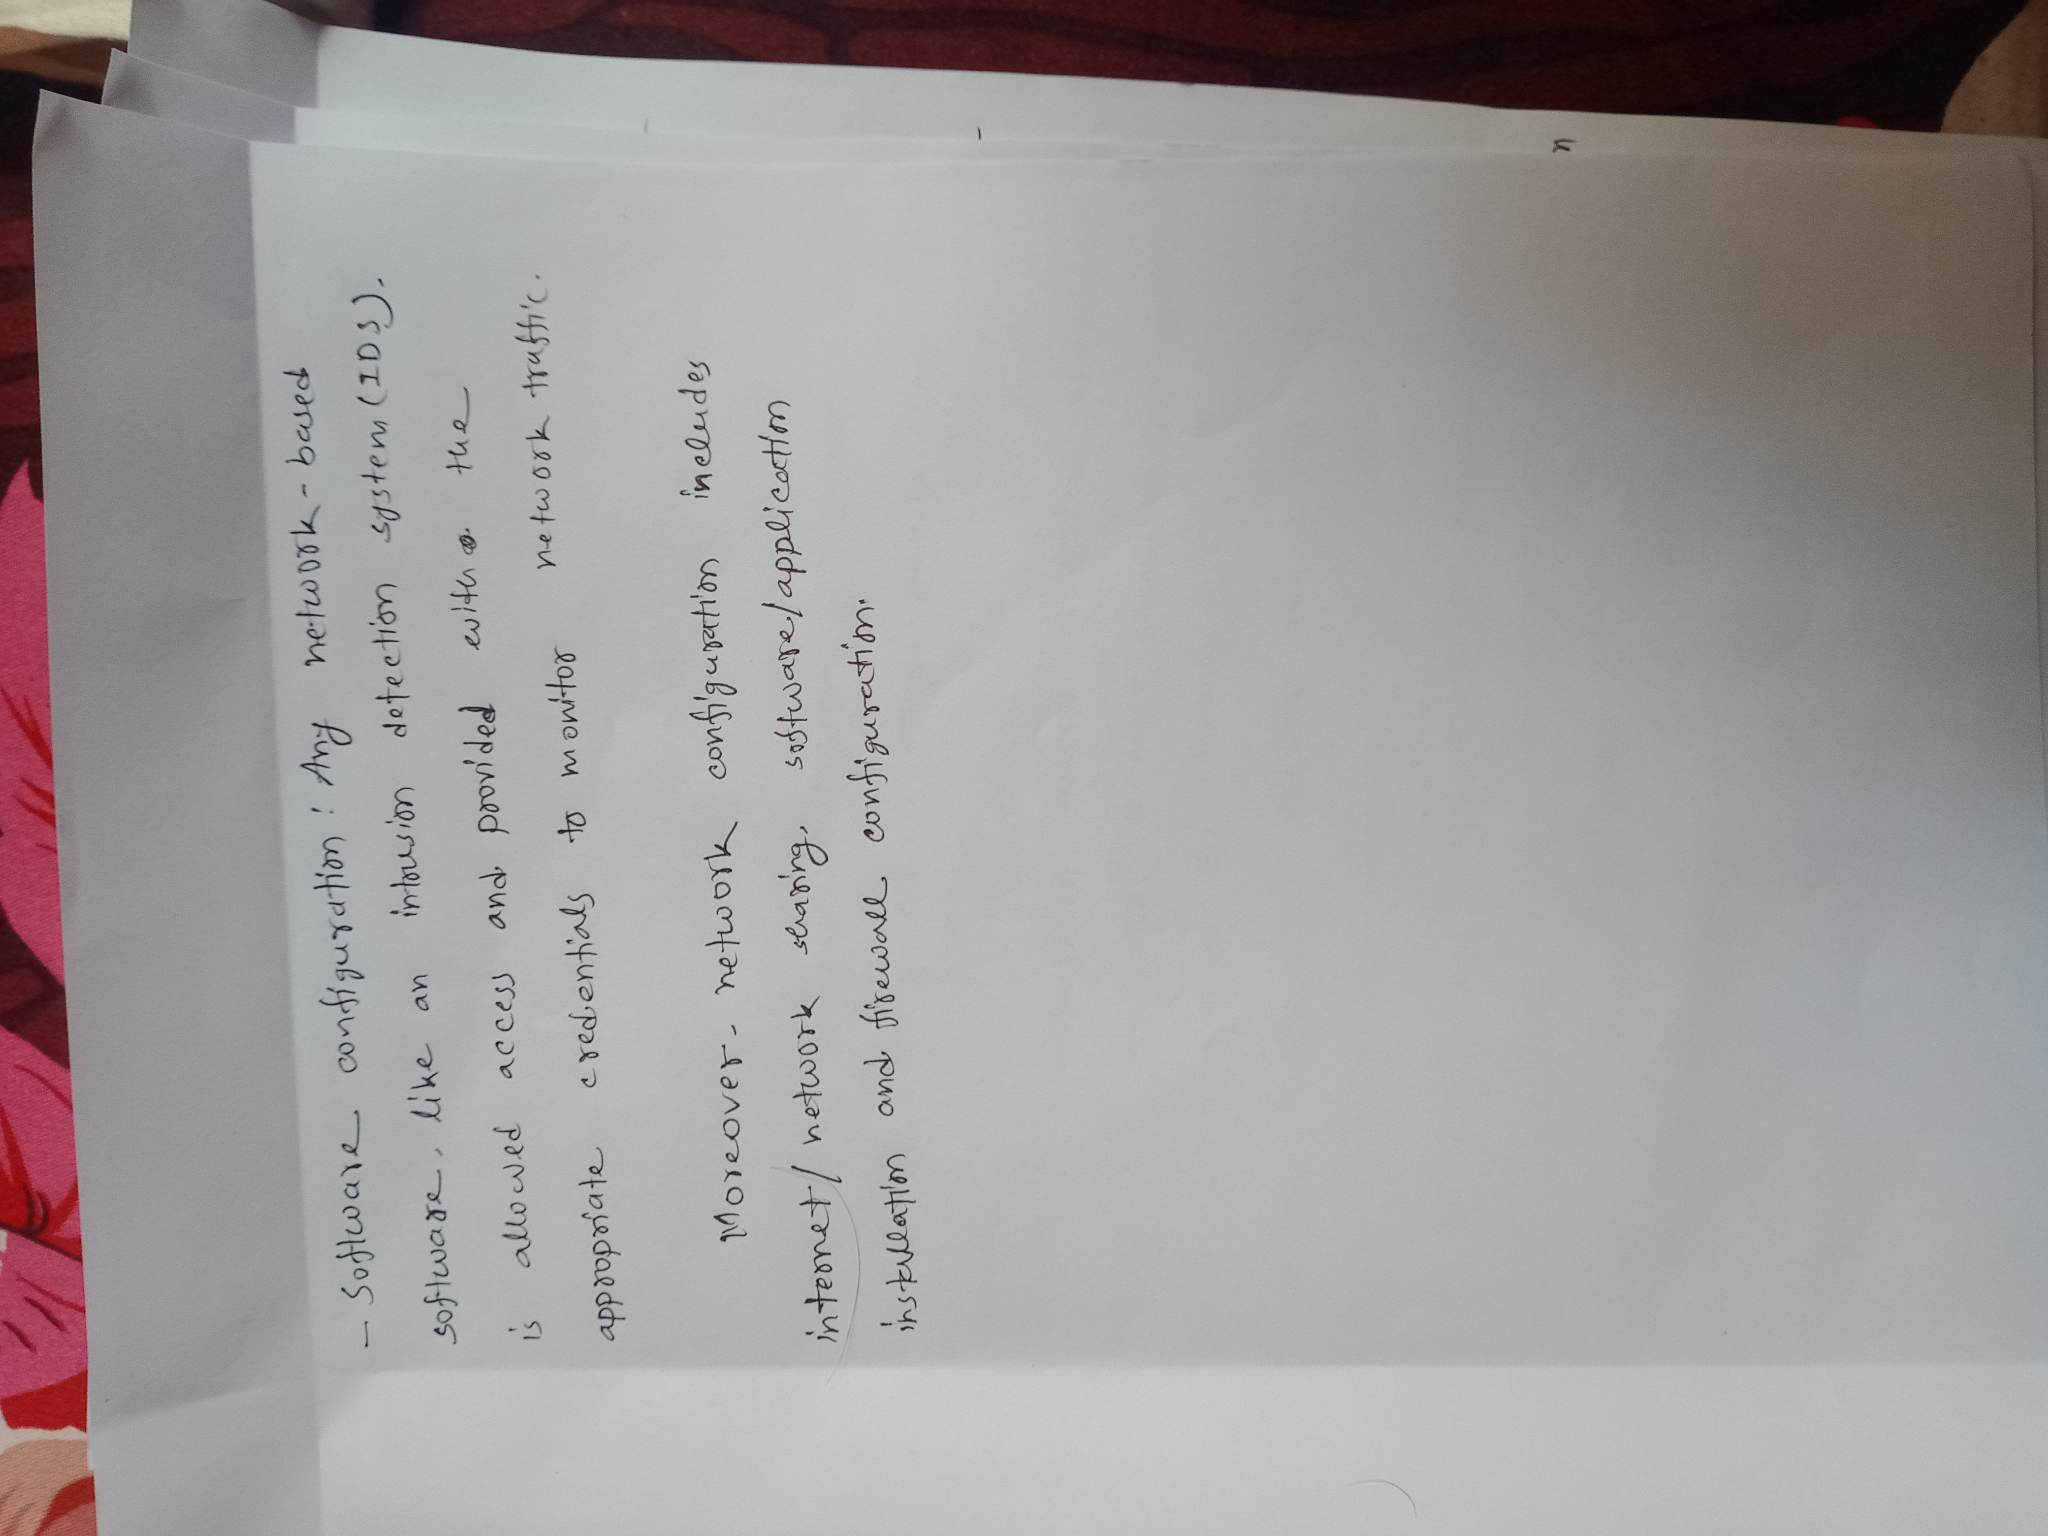 - Software configuration : Any network-based
software, like an intrusion detection system (IDS),
is allowed access and provided with the
appropriate credentials to monitor network traffic.
Moreover, network configuration includes
internet/network sharing, software/application
installation and firewall configuration.
n